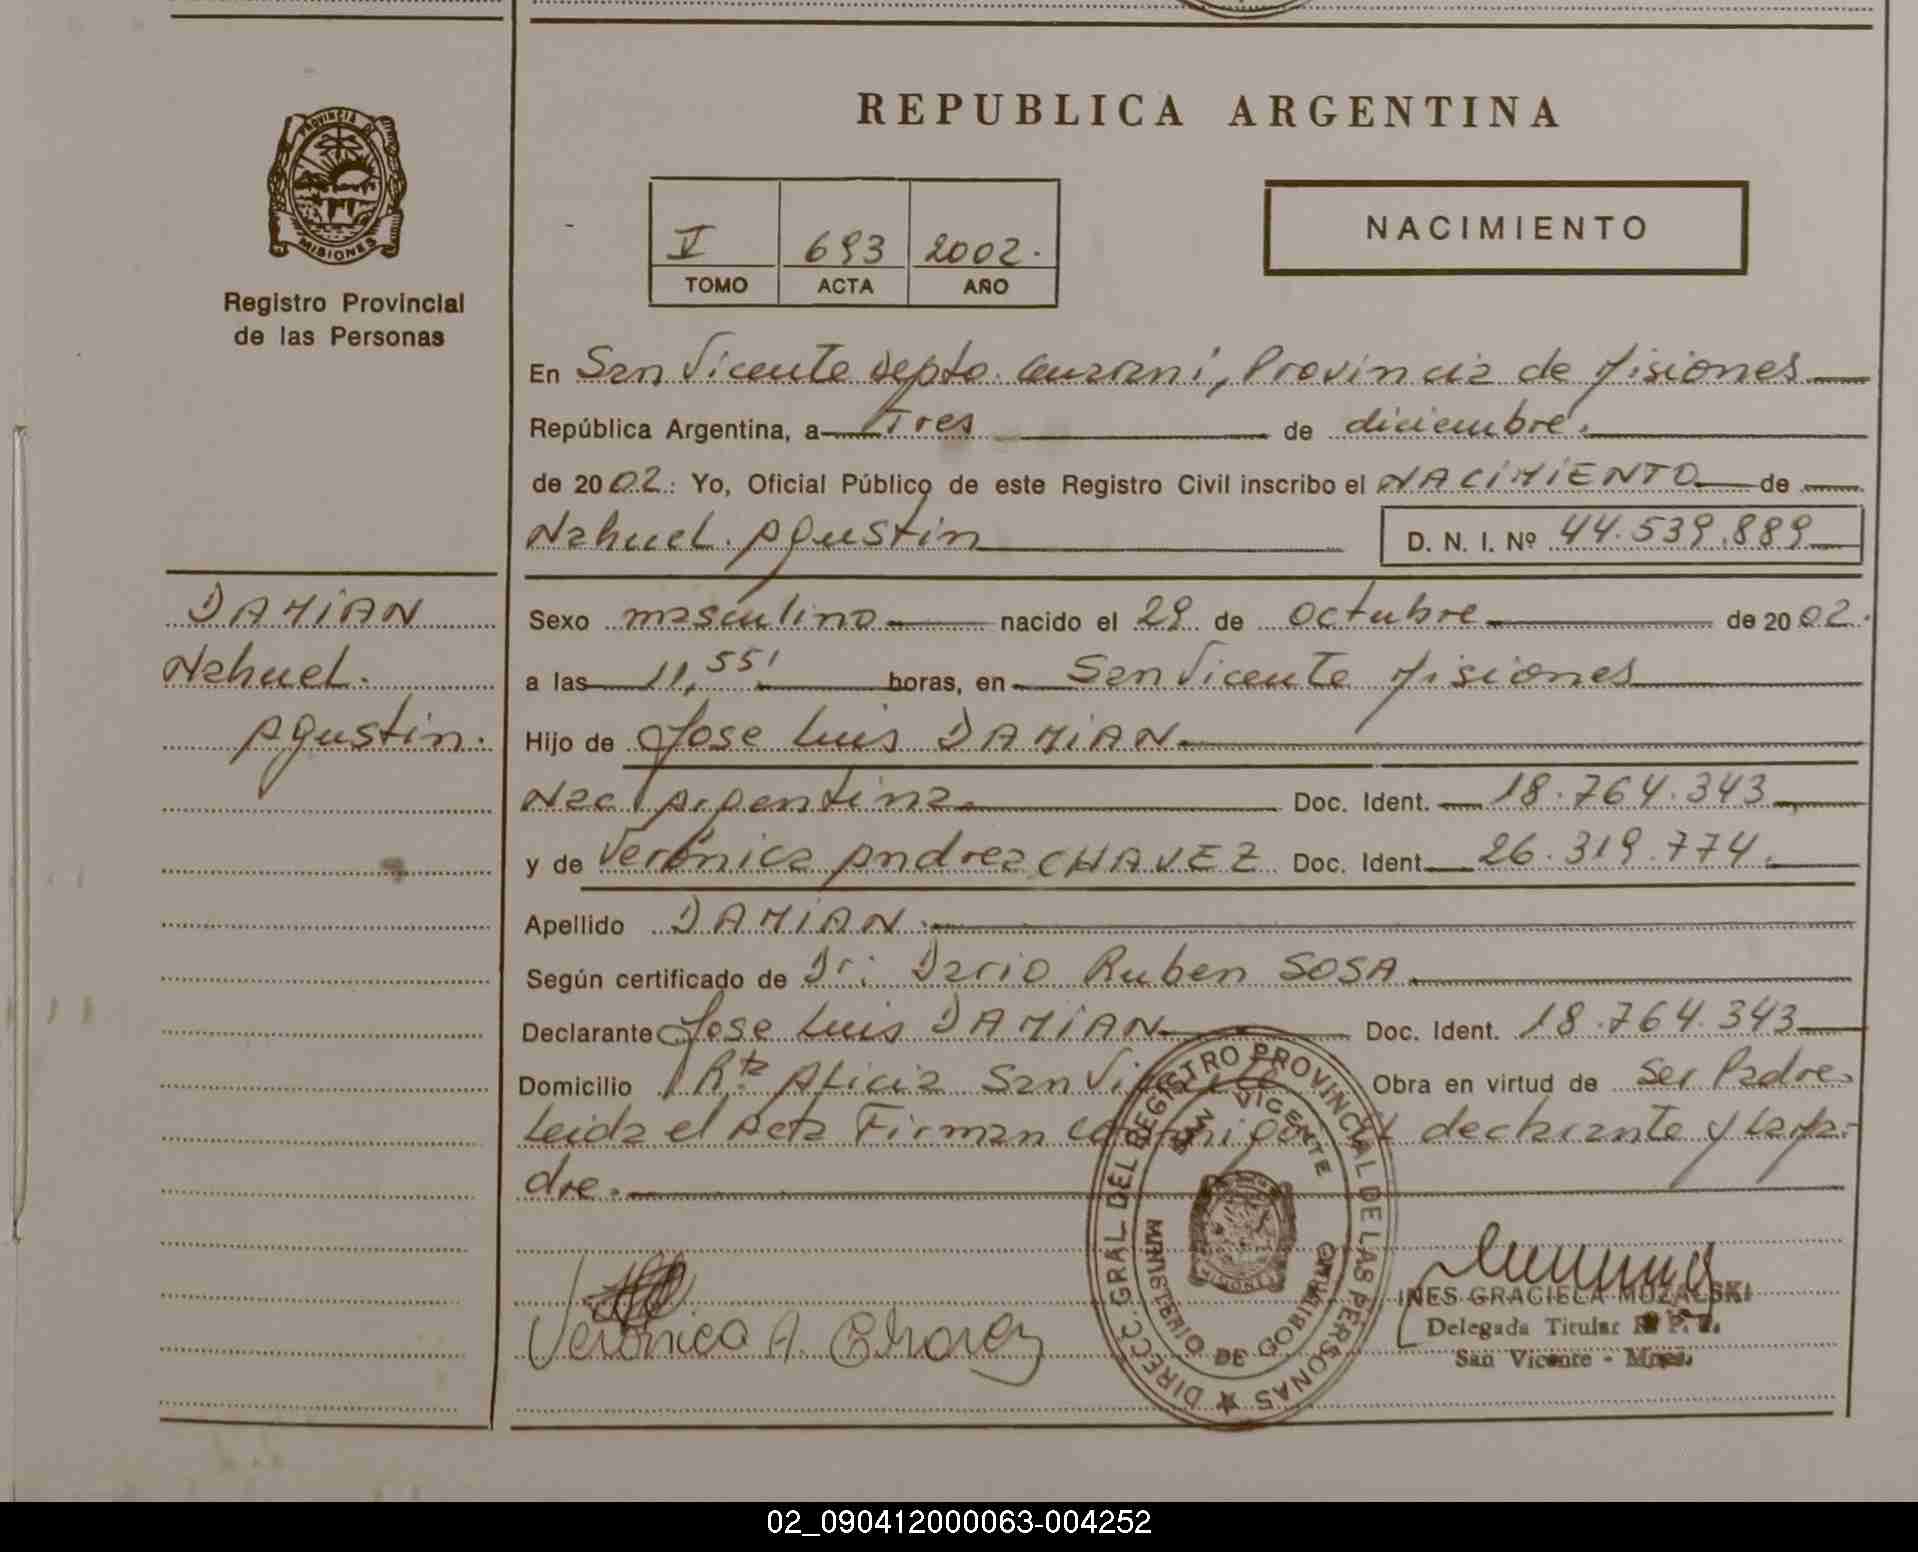 REPUBLICA ARGENTINA
PROVINCIA DE
MISIONES
Registro Provincial
de las Personas
V 693 2002.
TOMO ACTA AÑO
NACIMIENTO
En San Vicente Depto. Guaraní, Provincia de Misiones
República Argentina, a Tres de diciembre.
de 2002: Yo, Oficial Público de este Registro Civil inscribo el NACIMIENTO de
Nahuel Agustin D. N. I. Nº 44.539.889
DAMIAN
Nahuel.
Agustin.
Sexo masculino nacido el 29 de octubre de 2002.
a las 11,55' horas, en San Vicente Misiones
Hijo de Jose Luis DAMIAN
Nac Argentina. Doc. Ident. 18.764.343
y de Verónica Andrea CHAVEZ Doc. Ident. 26.319.774.
Apellido DAMIAN.
Según certificado de Dr: Dario Ruben SOSA
Declarante Jose Luis DAMIAN Doc. Ident. 18.764.343
Domicilio Rta Alicia San Vicente Obra en virtud de Ser Padre.
Leida el Acta Firman conmigo el declarante y la ma-
dre.
DIRECC GRAL. DEL REGISTRO PROVINCIAL DE LAS PERSONAS
SAN VICENTE
MINISTERIO DE GOBIERNO
Verónica A. Chavez
INES GRACIELA MUZALSKI
Delegada Titular R. P. P.
San Vicente - Mnes.
02_090412000063-004252